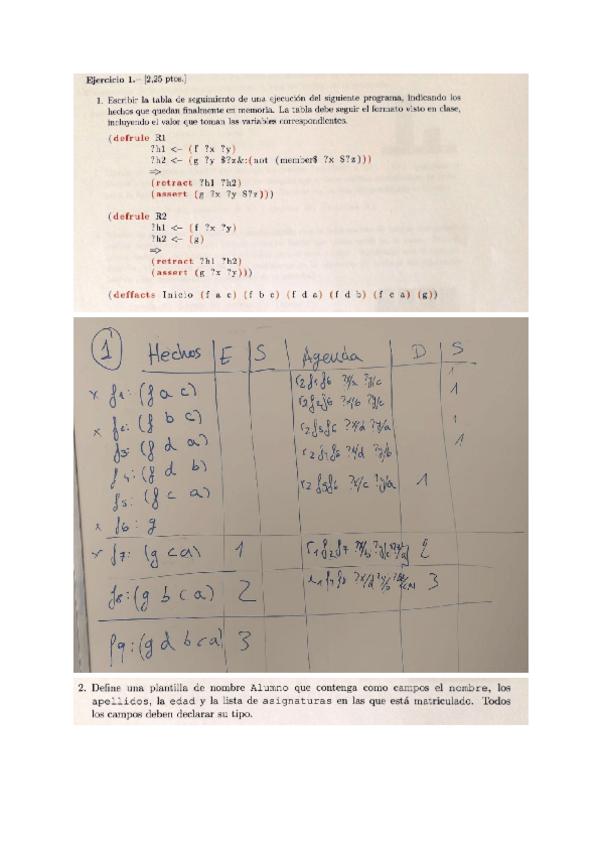 Ejercicio 1.– [2,25 ptos.]
1. Escribir la tabla de seguimiento de una ejecución del siguiente programa, indicando los
hechos que quedan finalmente en memoria. La tabla debe seguir el formato visto en clase,
incluyendo el valor que toman las variables correspondientes.
(defrule R1
?h1 <- (f ?x ?y)
?h2 <- (g ?y $?z&:(not (member$ ?x $?z)))
=>
(retract ?h1 ?h2)
(assert (g ?x ?y $?z)))
(defrule R2
?h1 <- (f ?x ?y)
?h2 <- (g)
=>
(retract ?h1 ?h2)
(assert (g ?x ?y)))
(deffacts Inicio (f a c) (f b c) (f d a) (f d b) (f c a) (g))
1 Hechos E S Agenda D S
x f1: (f a c) r2 f1 f6 ?x/a ?y/c 1
x f2: (f b c) r2 f2 f6 ?x/b ?y/c 1
f3: (f d a) r2 f3 f6 ?x/d ?y/a 1
f4: (f d b) r2 f4 f6 ?x/d ?y/b 1
f5: (f c a) r2 f5 f6 ?x/c ?y/a 1
x f6: g
f7: (g c a) 1 r1 f2 f7 ?x/b ?y/c 2
f8: (g b c a) 2 3
f9: (g d b c a) 3
2. Define una plantilla de nombre Alumno que contenga como campos el nombre, los
apellidos, la edad y la lista de asignaturas en las que está matriculado. Todos
los campos deben declarar su tipo.